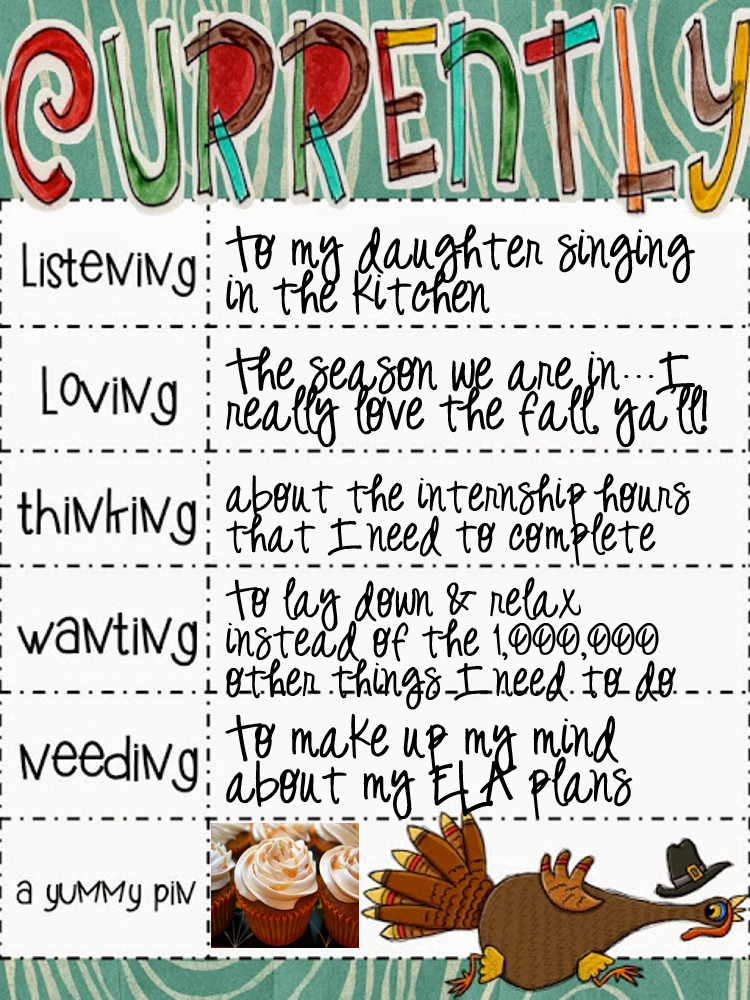 CURRENTLY
Listening
to my daughter singing
in the kitchen
Loving
the season we are in...I
really love the fall, ya'll!
thinking
about the internship hours
that I need to complete
wanting
to lay down & relax
instead of the 1,000,000
other things I need to do
needing
to make up my mind
about my ELA plans
a yummy pin